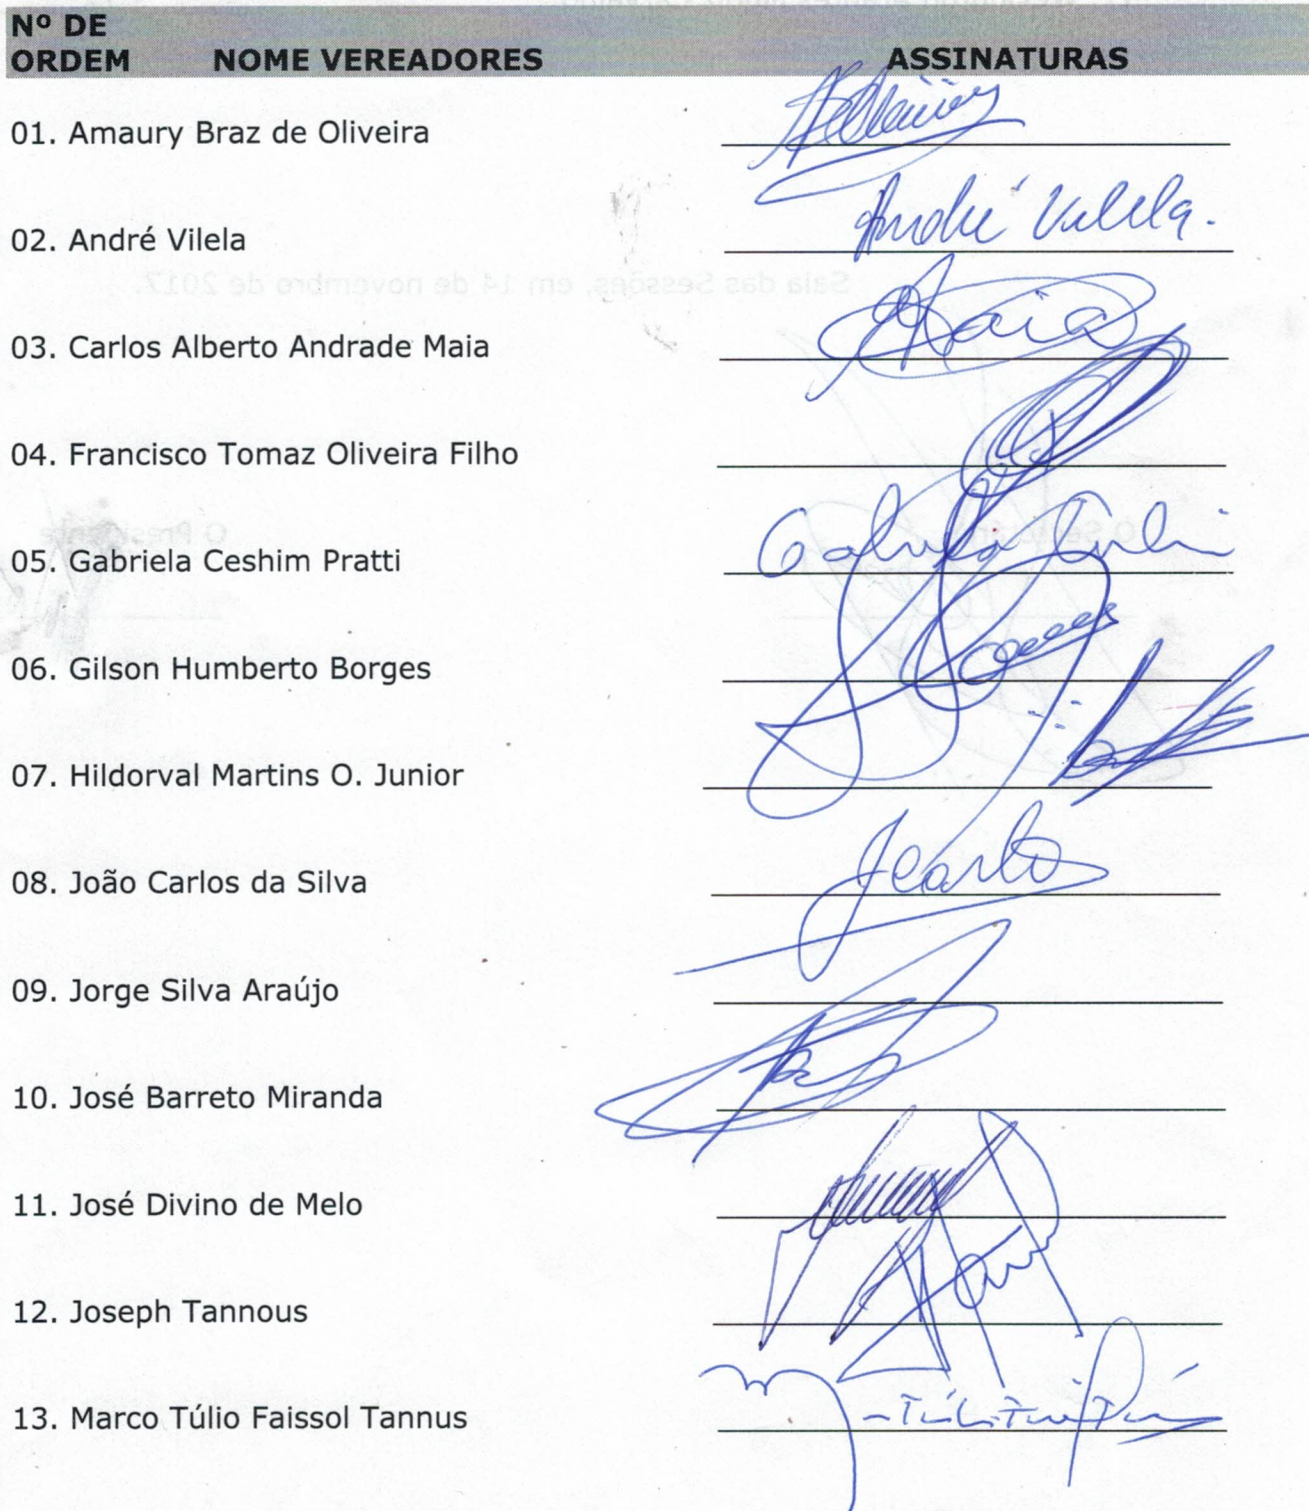 Nº DE
ORDEM NOME VEREADORES ASSINATURAS
01. Amaury Braz de Oliveira
02. André Vilela André Vilela.
03. Carlos Alberto Andrade Maia Maia
04. Francisco Tomaz Oliveira Filho
05. Gabriela Ceshim Pratti
06. Gilson Humberto Borges
07. Hildorval Martins O. Junior
08. João Carlos da Silva JCarlos
09. Jorge Silva Araújo
10. José Barreto Miranda
11. José Divino de Melo
12. Joseph Tannous
13. Marco Túlio Faissol Tannus
Sala das Sessões, em 14 de novembro de 2017.
O Presidente